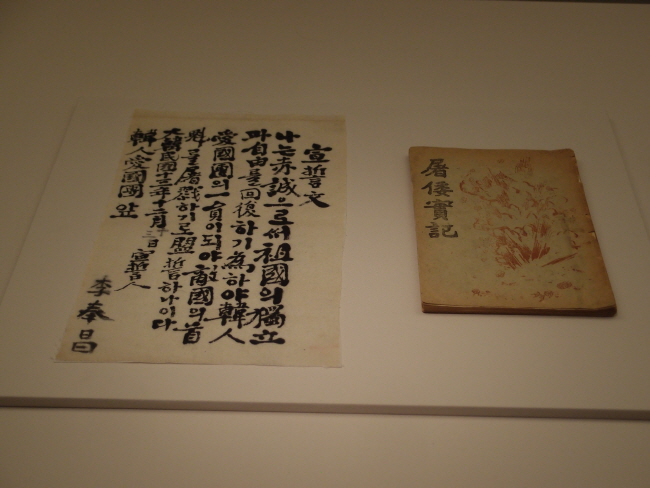 宣誓文
나는赤誠으로써祖國의獨立
과自由를回復하기爲하야韓人
愛國團의一員이되야敵國의首
魁를屠戮하기로盟誓하나이다
大韓民國十三年十二月十三日
宣誓人
李奉昌
韓人愛國團앞
屠倭實記